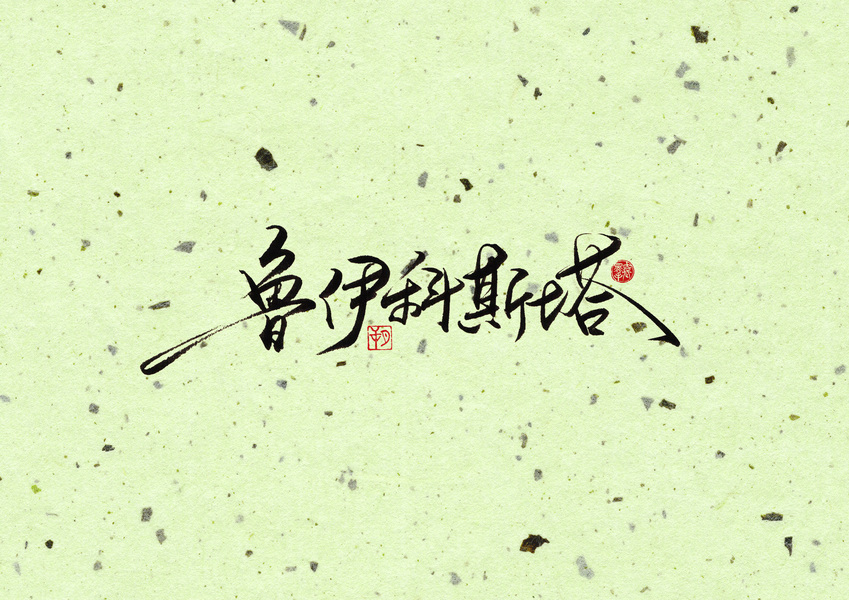 鲁伊科斯塔